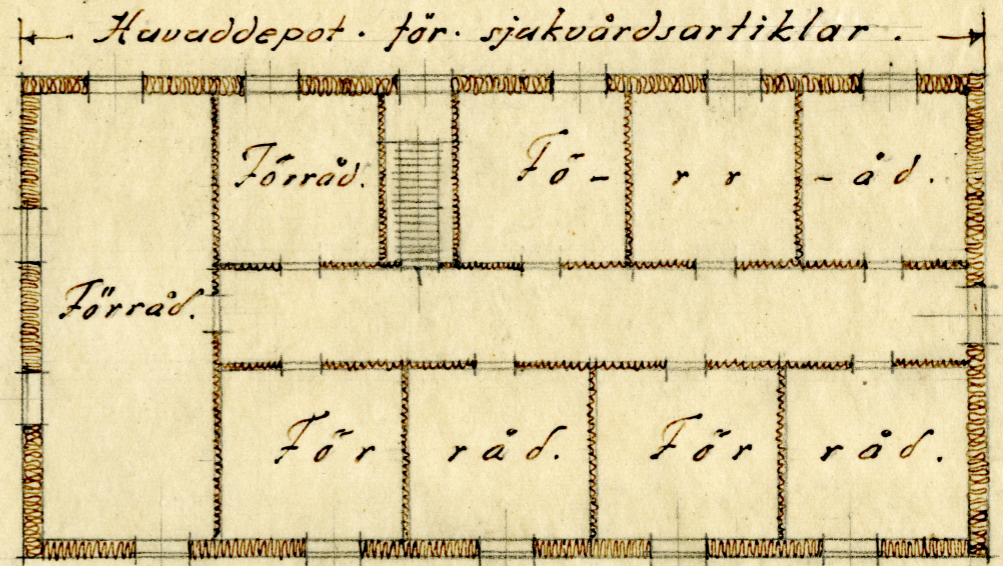 Huvuddepot. för. sjukvårdsartiklar.
Förråd. Fö- rr -åd.
Förråd.
För råd. För råd.